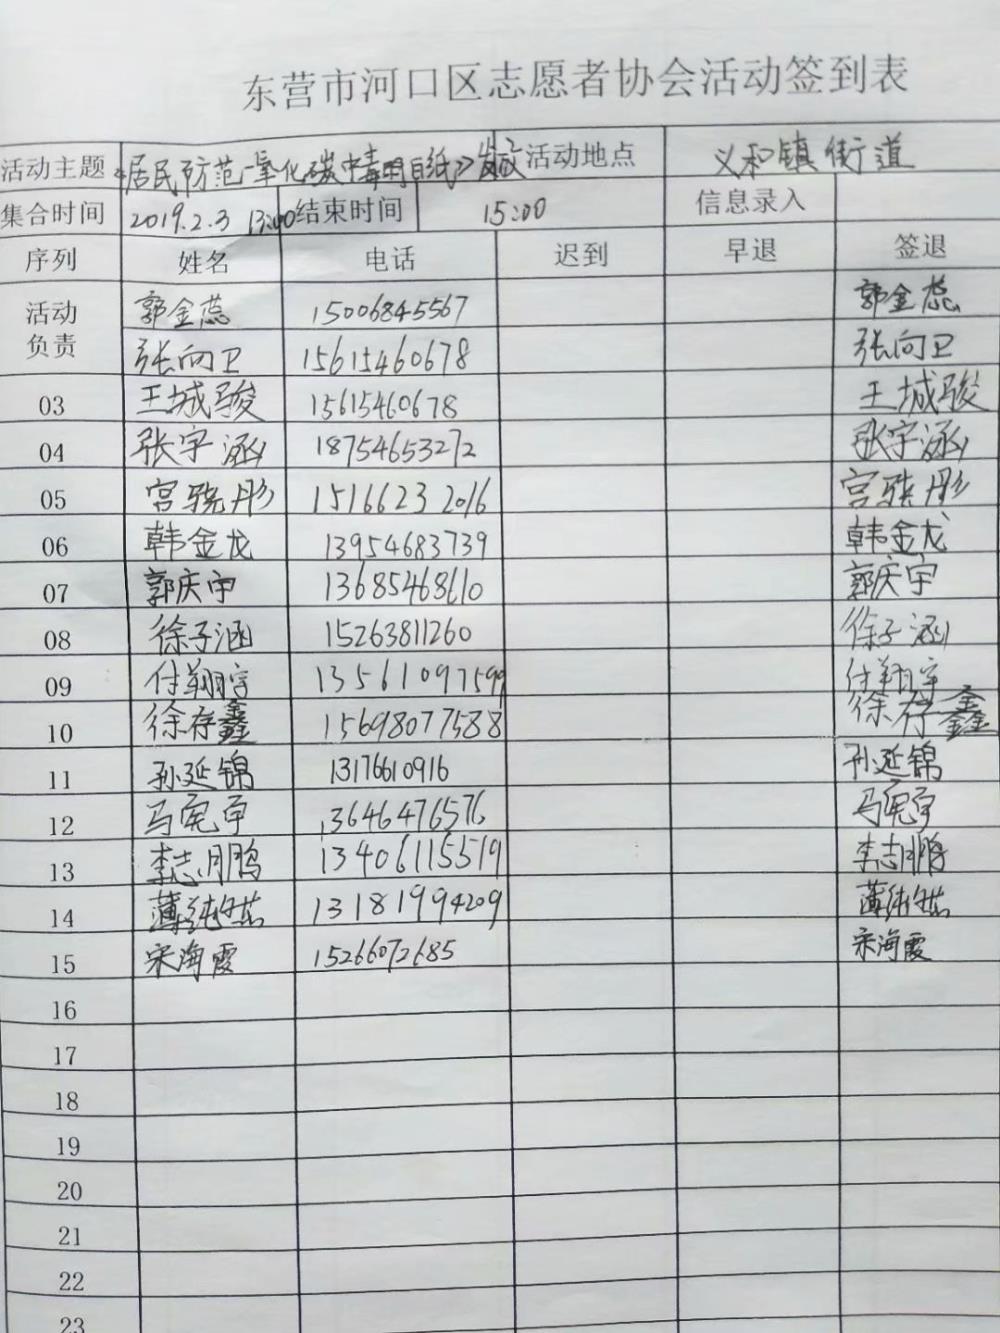 东营市河口区志愿者协会活动签到表
活动主题 《居民防范一氧化碳中毒明白纸》发放 活动地点 义和镇街道
集合时间 2019.2.3 13:00 结束时间 15:00 信息录入
序列 姓名 电话 迟到 早退 签退
活动负责 郭金蕊 15006845567 郭金蕊
张向卫 15615460678 张向卫
03 王城骏 15615460678 王城骏
04 张宇涵 18754653272 张宇涵
05 宫骁彤 15166232016 宫骁彤
06 韩金龙 13954683739 韩金龙
07 郭庆宇 13685468610 郭庆宇
08 徐子涵 15263811260 徐子涵
09 付翔宇 13561097599 付翔宇
10 徐存鑫 15698077588 徐存鑫
11 孙延锦 13176610916 孙延锦
12 13646476576
13 李志鹏 13406115519 李志鹏
14 13181994209
15 宋海霞 15266072685 宋海霞
16
17
18
19
20
21
22
23